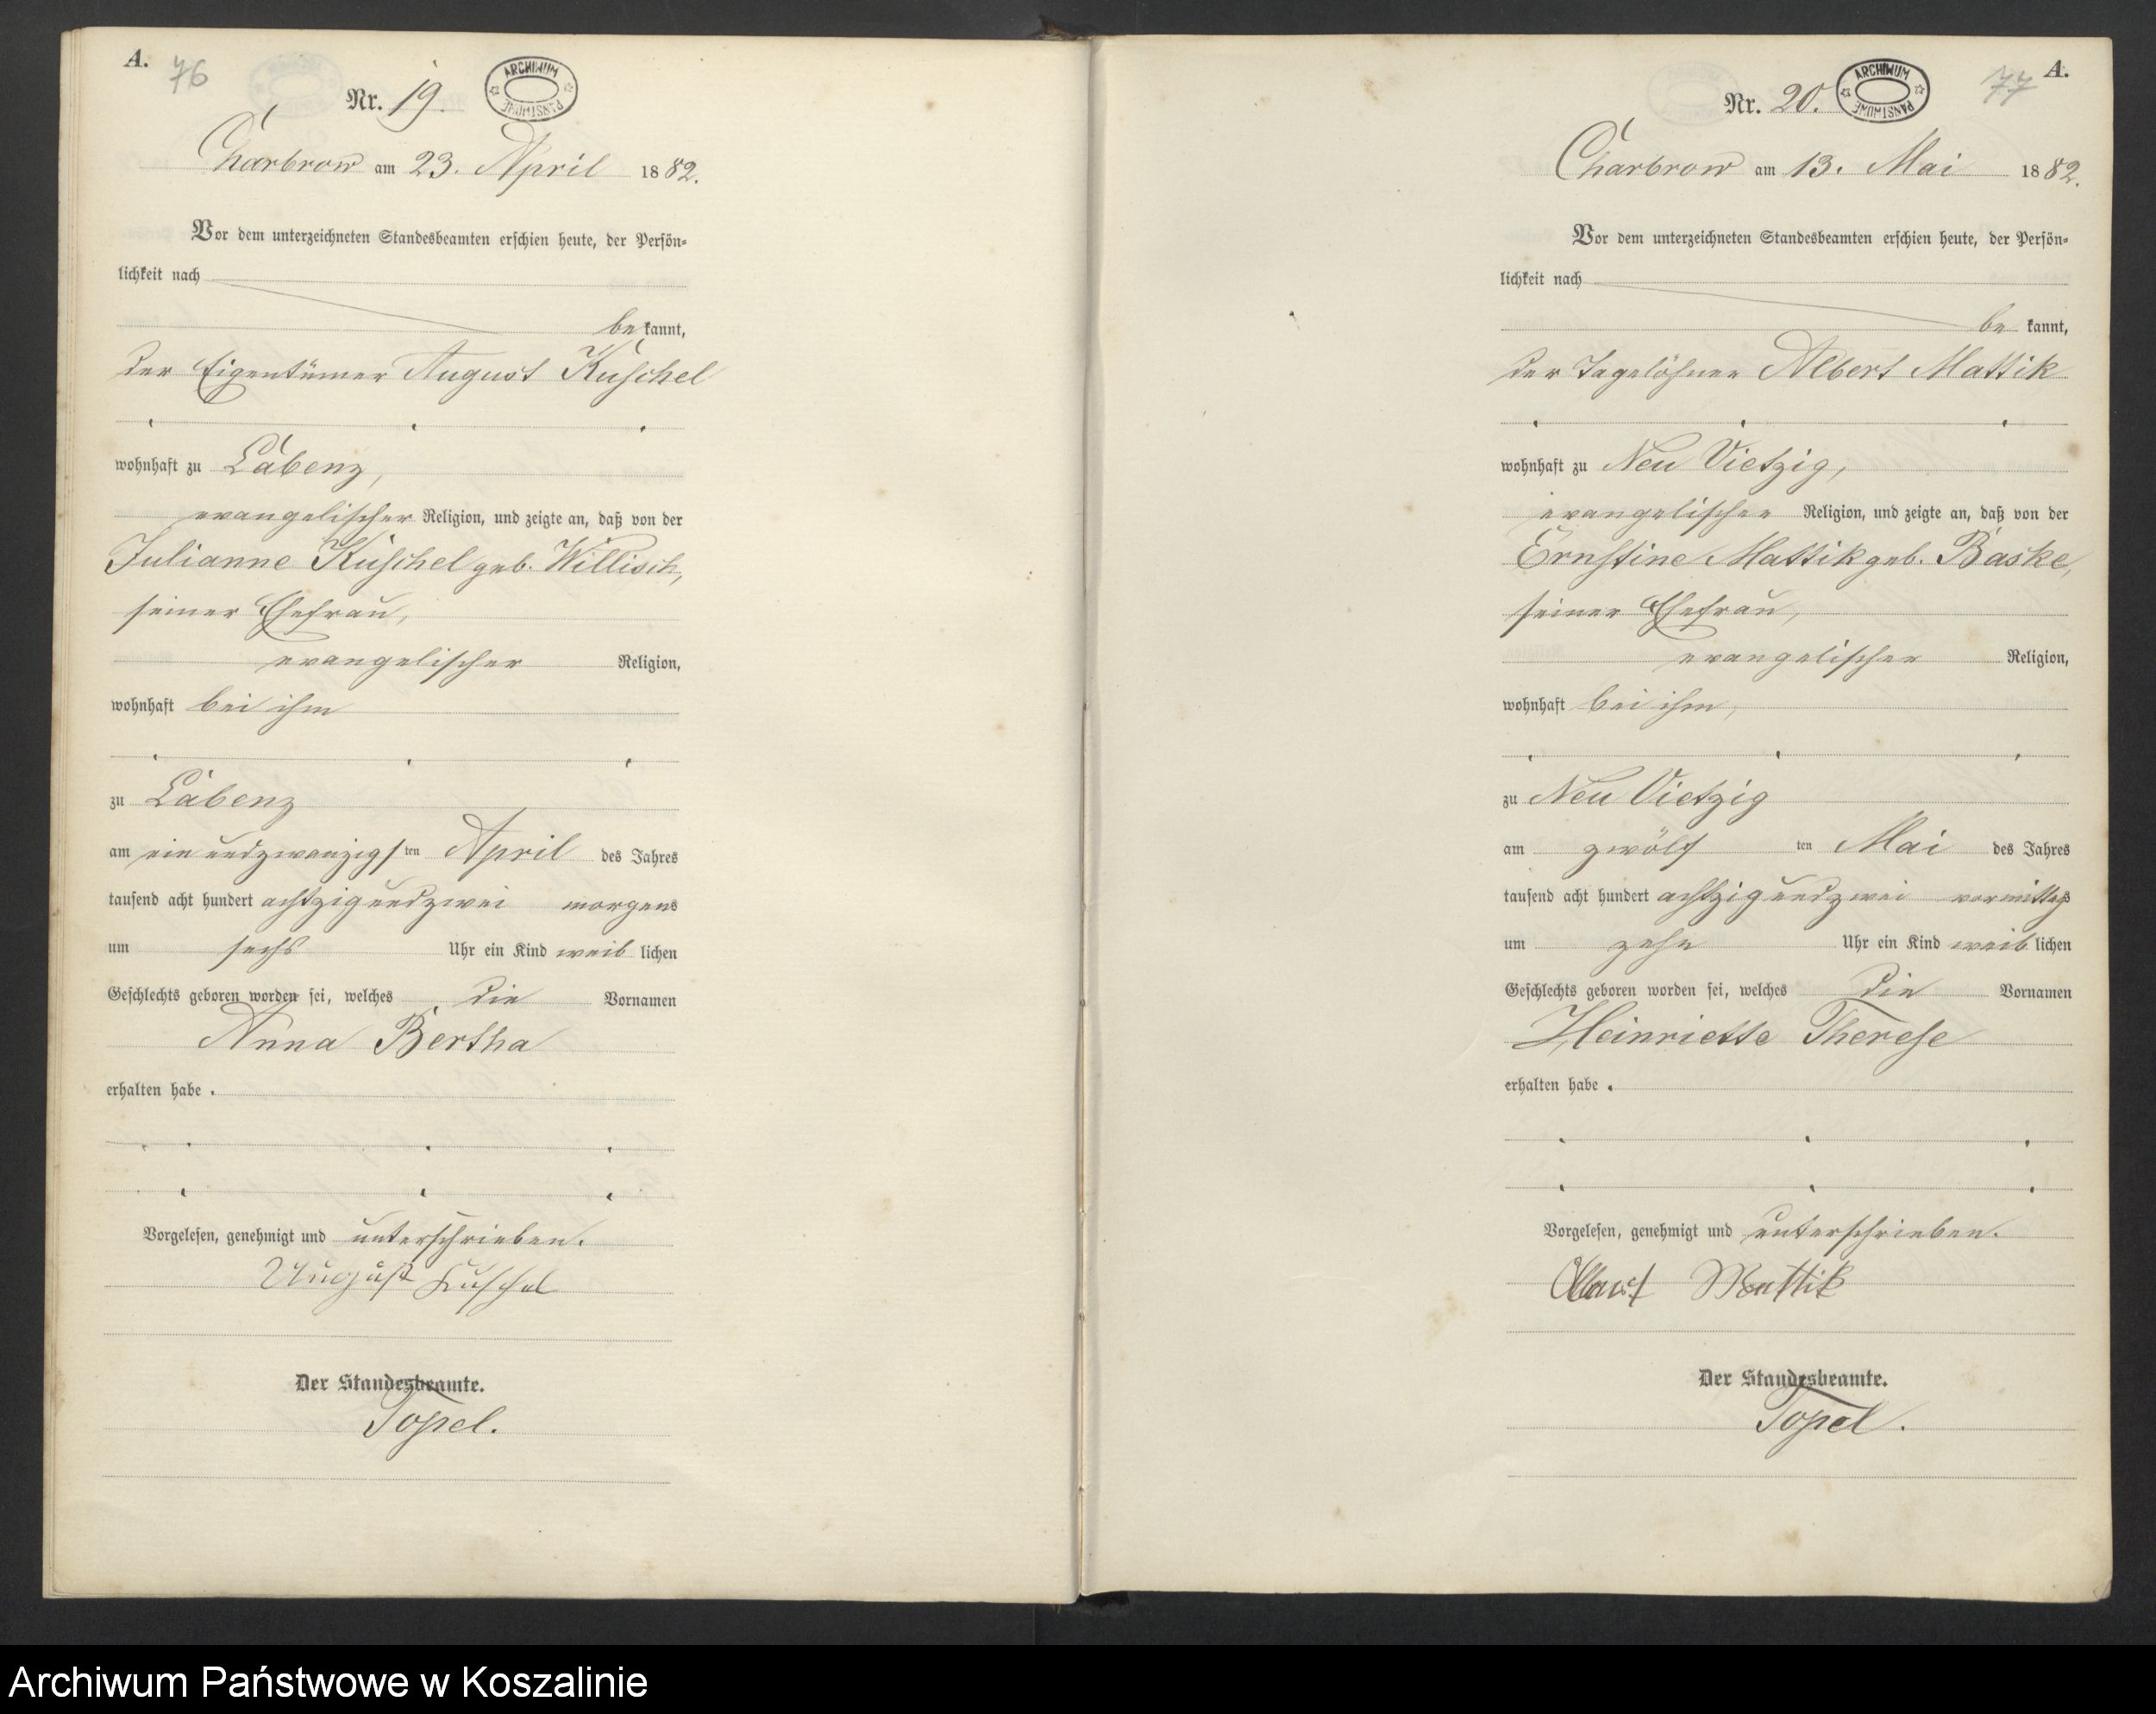 A.
76
Nr. 19.
ARCHIWUM PAŃSTWOWE
Charbrow am 23. April 1882.
Vor dem unterzeichneten Standesbeamten erschien heute, der Persön-
lichkeit nach
bekannt,
der Eigentümer August Kuschel
wohnhaft zu Labenz,
evangelischer Religion, und zeigte an, daß von der
Julianne Kuschel geb. Willisch,
seiner Ehefrau,
evangelischer Religion,
wohnhaft bei ihm
zu Labenz
am ein und zwanzigsten April des Jahres
tausend acht hundert achtzig und zwei morgens
um sechs Uhr ein Kind weiblichen
Geschlechts geboren worden sei, welches die Vornamen
Anna Bertha
erhalten habe.
Vorgelesen, genehmigt und unterschrieben.
August Kuschel
Der Standesbeamte.
Topel.
A.
77
Nr. 20.
ARCHIWUM PAŃSTWOWE
Charbrow am 13. Mai 1882.
Vor dem unterzeichneten Standesbeamten erschien heute, der Persön-
lichkeit nach
bekannt,
der Tagelöhner Albert Mattik
wohnhaft zu Neu Vietzig,
evangelischer Religion, und zeigte an, daß von der
Ernstine Mattik geb. Baske,
seiner Ehefrau,
evangelischer Religion,
wohnhaft bei ihm,
zu Neu Vietzig
am zwölften Mai des Jahres
tausend acht hundert achtzig und zwei vormittags
um zehn Uhr ein Kind weiblichen
Geschlechts geboren worden sei, welches die Vornamen
Heinriette Therese
erhalten habe.
Vorgelesen, genehmigt und unterschrieben.
Mattik
Der Standesbeamte.
Topel.
Archiwum Państwowe w Koszalinie